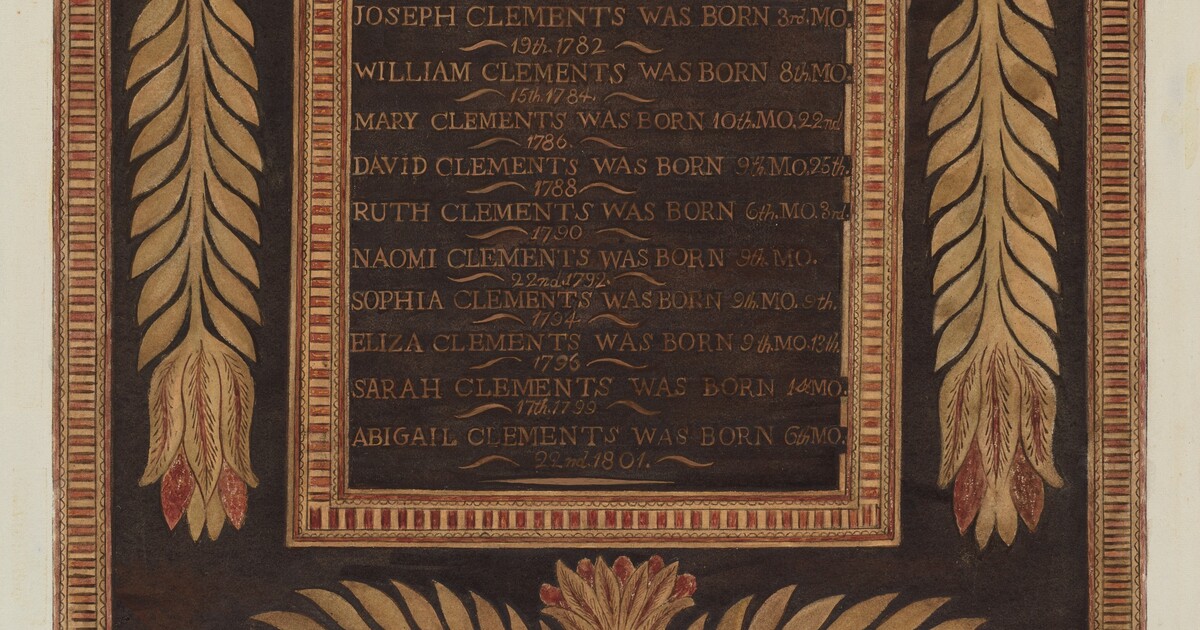 JOSEPH CLEMENTS WAS BORN 3rd. MO.
19th. 1782
WILLIAM CLEMENTS WAS BORN 8th. MO.
15th. 1784.
MARY CLEMENTS WAS BORN 10th. MO. 22nd
1786.
DAVID CLEMENTS WAS BORN 9th. MO. 25th.
1788
RUTH CLEMENTS WAS BORN 6th. MO. 3rd.
1790
NAOMI CLEMENTS WAS BORN 9th. MO.
22nd. 1792.
SOPHIA CLEMENTS WAS BORN 9th. MO. 9th.
1794
ELIZA CLEMENTS WAS BORN 9th. MO. 13th.
1796
SARAH CLEMENTS WAS BORN 1st MO.
17th. 1799
ABIGAIL CLEMENTS WAS BORN 6th MO.
22nd. 1801.